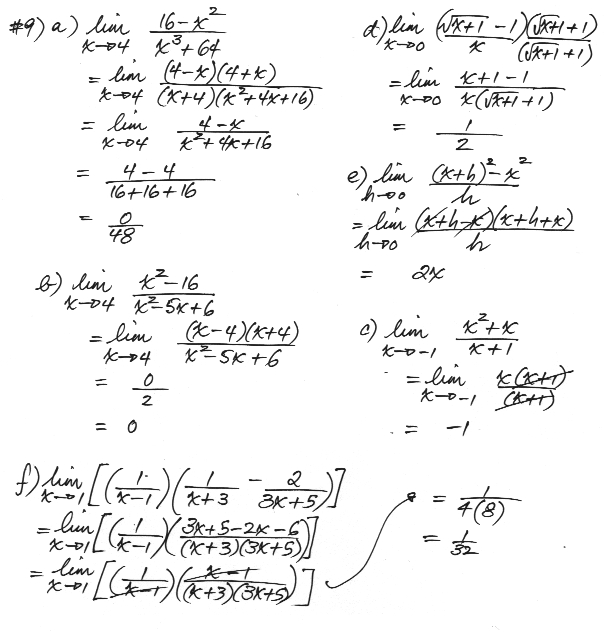 #9) a) lim x→4 (16-x²)/(x³+64)
= lim x→4 ((4-x)(4+x))/((x+4)(x²+4x+16))
= lim x→4 (4-x)/(x²+4x+16)
= (4-4)/(16+16+16)
= 0/48
b) lim x→4 (x²-16)/(x²-5x+6)
= lim x→4 ((x-4)(x+4))/(x²-5x+6)
= 0/2
= 0
d) lim x→0 ((√x+1 -1)/x) ((√x+1 +1)/(√x+1 +1))
= lim x→0 (x+1-1)/(x(√x+1 +1))
= 1/2
e) lim h→0 ((x+h)²-x²)/h
= lim h→0 ((x+h-x)(x+h+x))/h
= 2x
c) lim x→-1 (x²+x)/(x+1)
= lim x→-1 (x(x+1))/(x+1)
= -1
f) lim x→1 [(1/(x-1))(1/(x+3) - 2/(3x+5))]
= lim x→1 [(1/(x-1))((3x+5-2x-6)/((x+3)(3x+5)))]
= lim x→1 [(1/(x-1))((x-1)/((x+3)(3x+5)))]
= 1/(4(8))
= 1/32